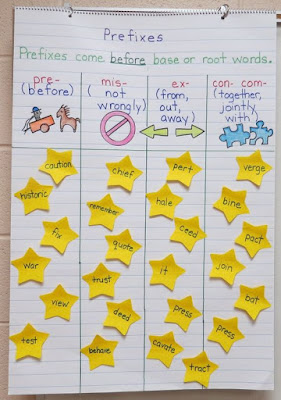 Prefixes
Prefixes come before base or root words.
pre-
(before)
mis-
( not
wrongly)
ex-
(from,
out,
away)
con- com-
(together,
jointly
with)
caution
historic
fix
war
view
test
chief
remember
quote
trust
deed
behave
pert
hale
ceed
it
press
cavate
tract
verge
bine
pact
join
bat
press